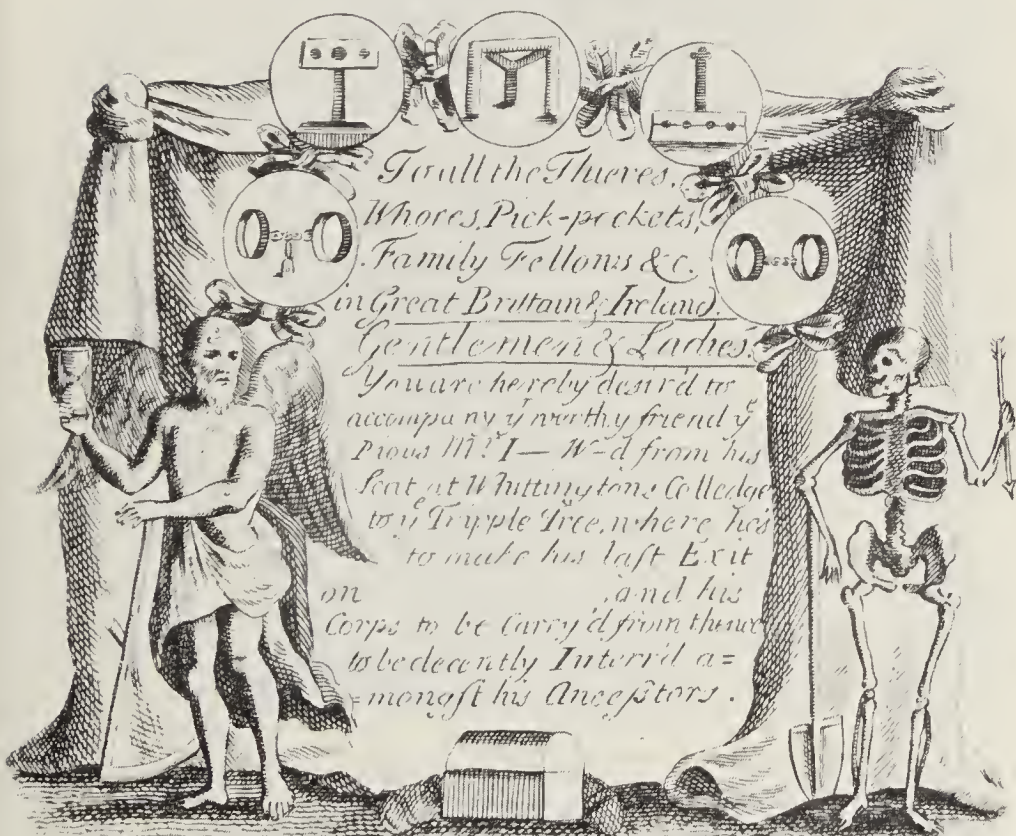 To all the Thieves,
Whores, Pick-pockets,
Family Fellons &c.
in Great Brittain & Ireland.
Gentlemen & Ladies
You are hereby desir'd to
accompany yr worthy friend ye
Pious Mr. I— W—d from his
Seat at Whittingtons Colledge
to ye Tripple Tree, where he's
to make his last Exit
on , and his
Corps to be Carry'd from thence
to be decently Interr'd a=
=mongst his Ancestors.